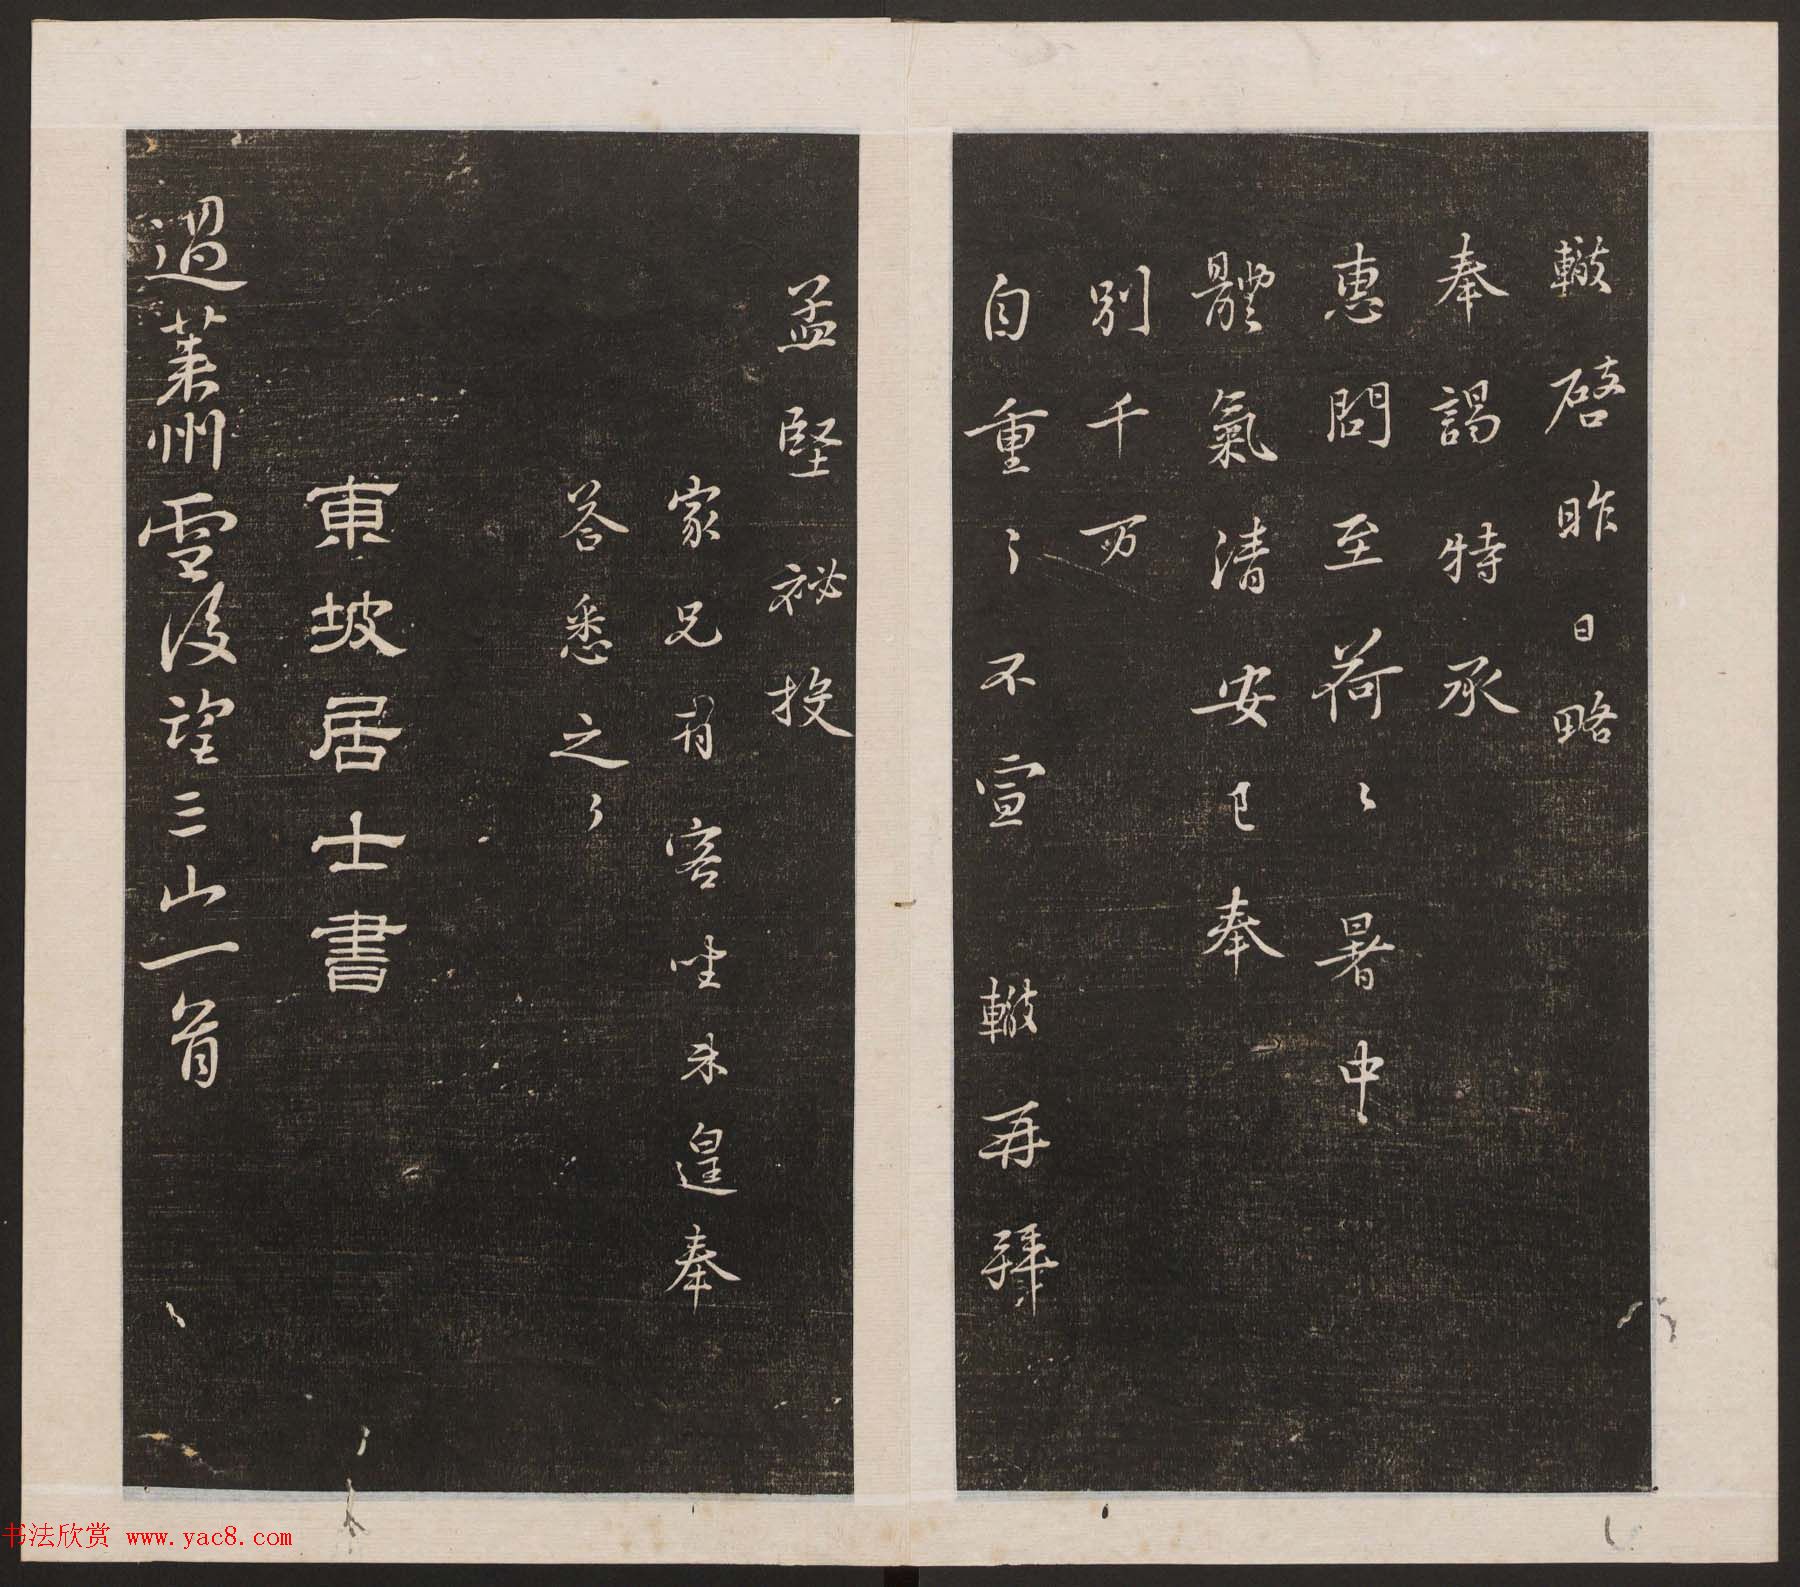 轍啓昨日略
奉謁特承
惠問至荷〻暑中
體氣清安已奉
別千万
自重〻不宣 轍再拜
孟堅祕校
家兄有客坐未遑奉
答悉之〻
東坡居士書
過萊州雪後望三山一首
书法欣赏 www.yac8.com